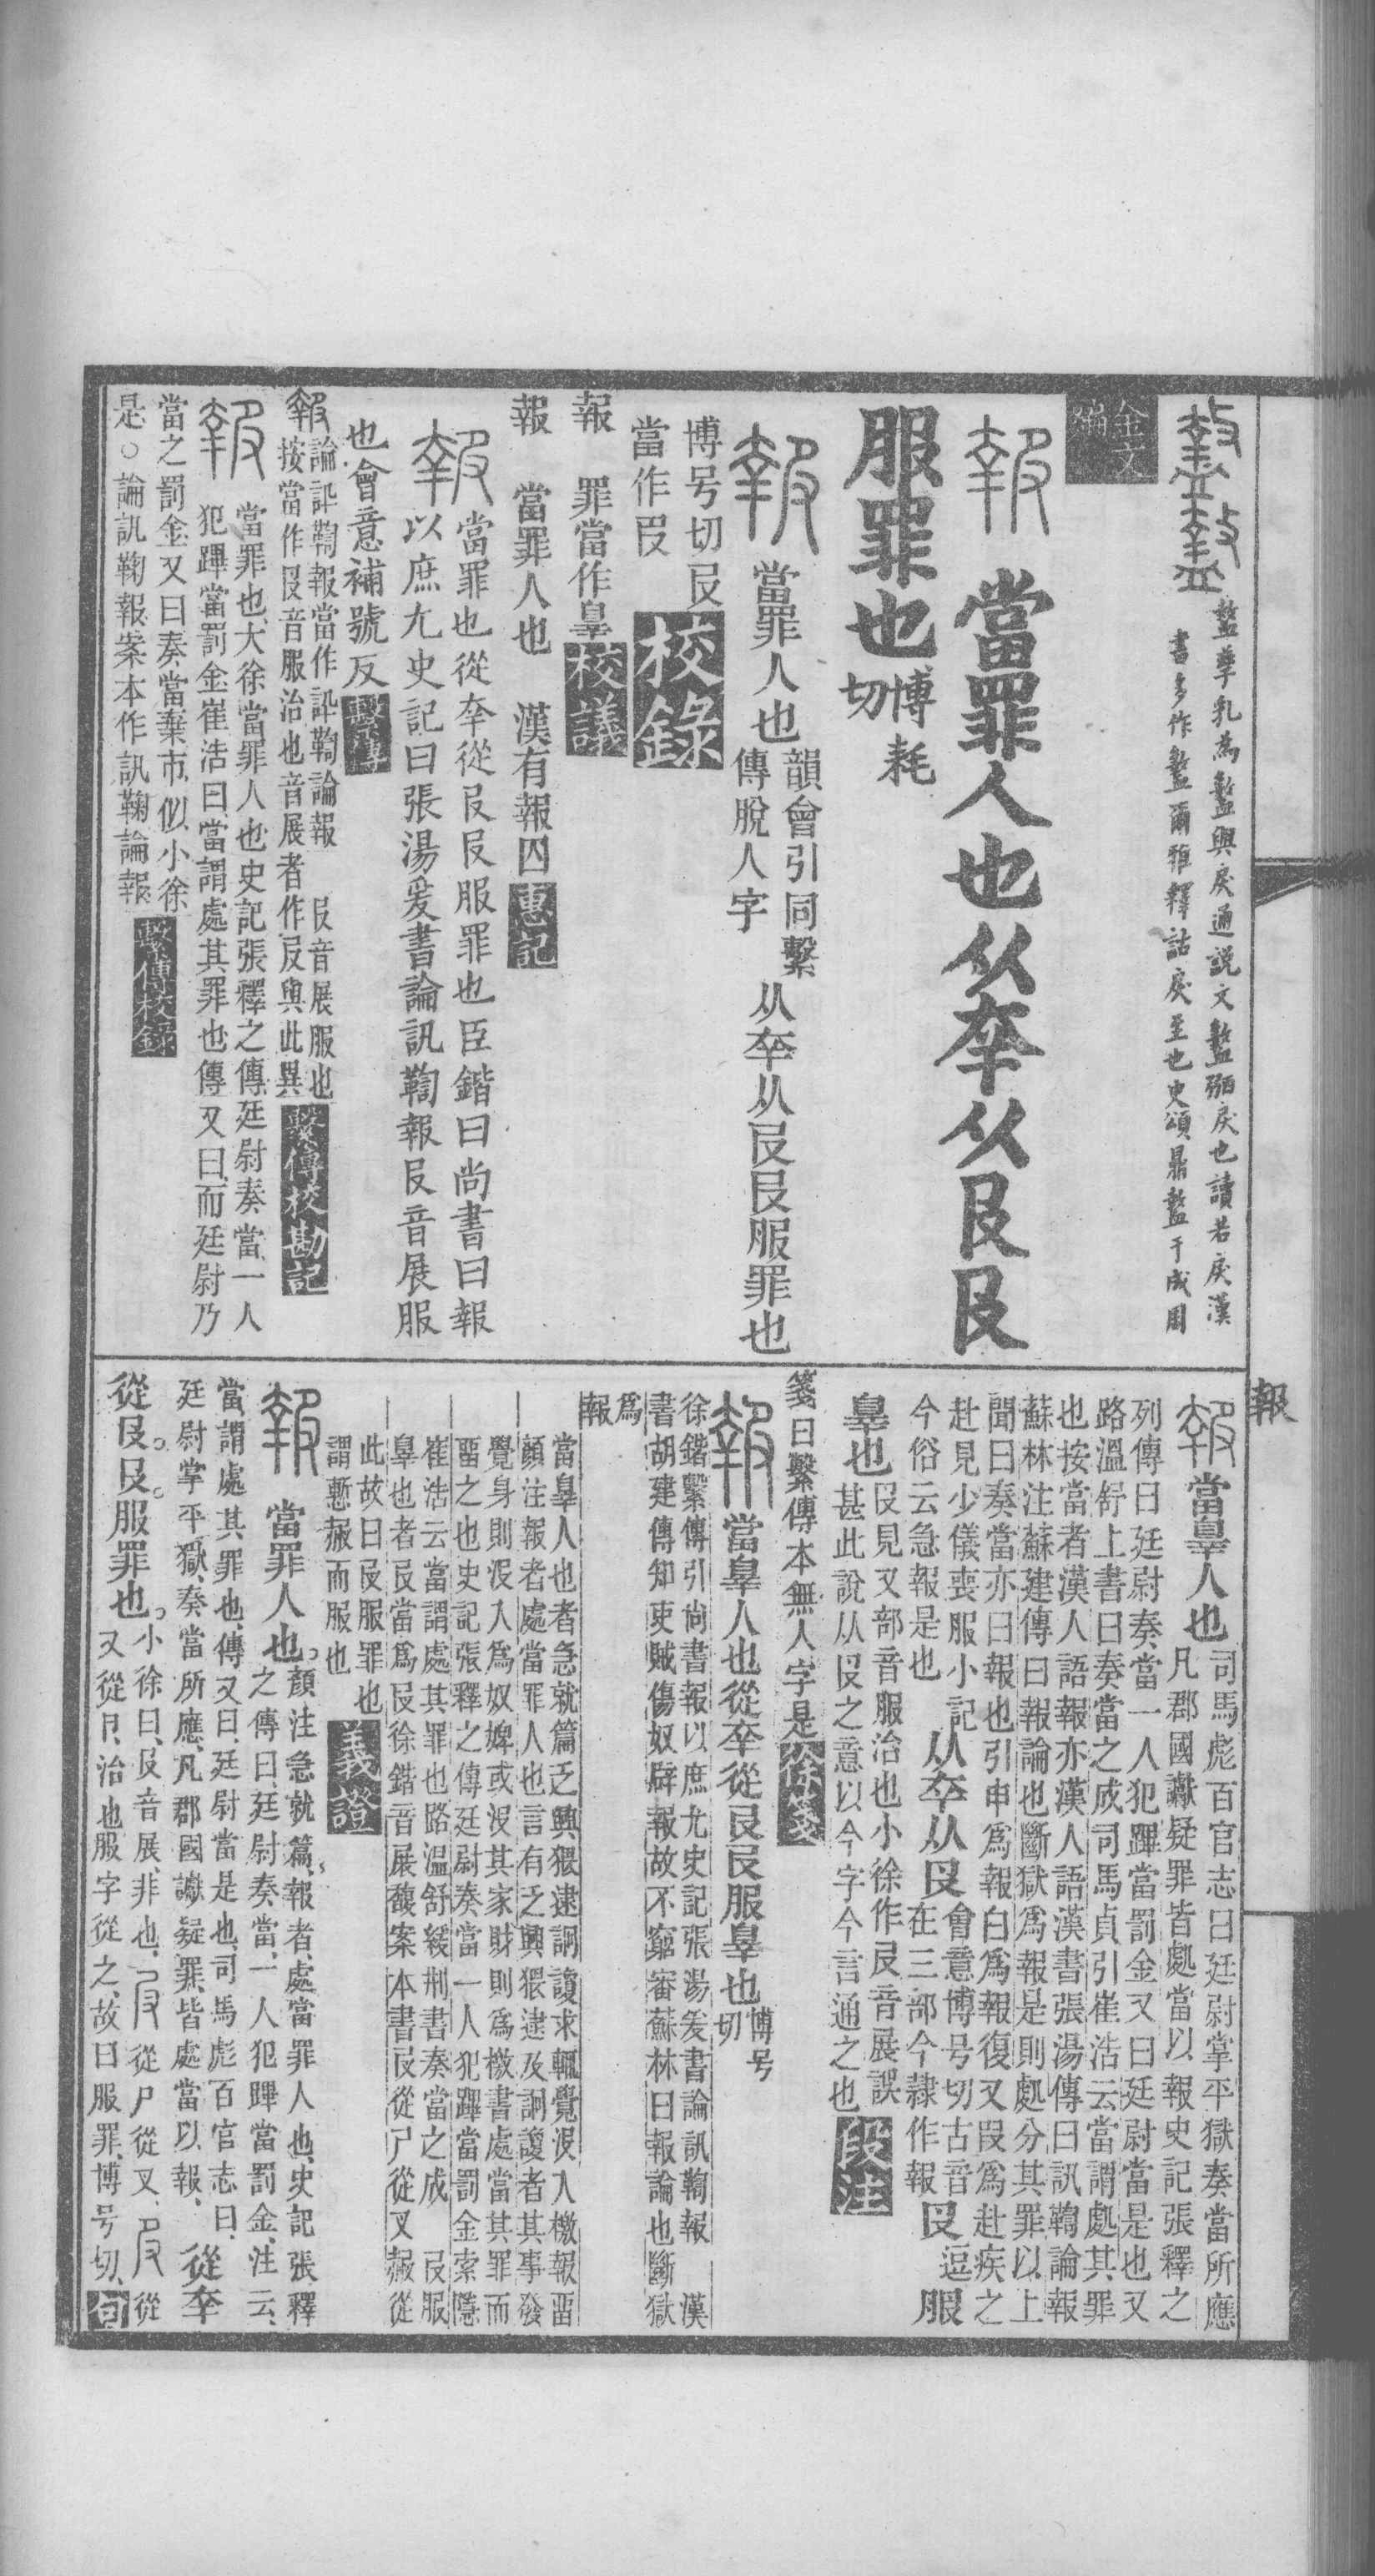 盩孳乳為盭與戾通説文盭弼戾也讀若戾漢
書多作盭爾雅釋詁戾至也史頌鼎盭于成周
金文編
報
當罪人也从㚔从𠬝𠬝
服罪也
博耗切
當罪人也
韻會引同繫
傳脫人字
从㚔从𠬝𠬝服罪也
博号切𠬝
當作𠬝
校錄
報 罪當作辠
校議
報 當罪人也 漢有報囚
惠記
當罪也從㚔從𠬝𠬝服罪也臣鍇曰尚書曰報
以庶尤史記曰張湯爰書論訊鞫報𠬝音展服
也會意補號反
繫傳
報
論訊鞫報當作訊鞫論報 𠬝音展服也
按當作𠬝音服治也音展者作𠬝與此異
繫傳校勘記
當罪也大徐當罪人也史記張釋之傳廷尉奏當一人
犯蹕當罰金崔浩曰當謂處其罪也傳又曰而廷尉乃
當之罰金又曰奏當棄市似小徐
是○論訊鞫報案本作訊鞫論報
繫傳校錄
報
當辠人也
司馬彪百官志曰廷尉掌平獄奏當所應
凡郡國讞疑罪皆處當以報史記張釋之
列傳曰廷尉奏當一人犯蹕當罰金又曰廷尉當是也又
路溫舒上書曰奏當之成司馬貞引崔浩云當謂處其罪
也按當者漢人語報亦漢人語漢書張湯傳曰訊鞫論報
蘇林注蘇建傳曰報論也斷獄爲報是則處分其罪以上
聞曰奏當亦曰報也引申爲報白爲報復又叚爲赴疾之
赴見少儀喪服小記
今俗云急報是也
从㚔从𠬝
會意博号切古音
在三部今隷作報
𠬝
逗
服
辠也
𠬝見又部音服治也小徐作𠬝音展誤
甚此說从𠬝之意以今字今言通之也
段注
箋曰繫傳本無人字是
徐箋
當辠人也從㚔從𠬝𠬝服辠也
博号
切
徐鍇繫傳引尚書報以庶尤史記張湯爰書論訊鞫報 漢
書胡建傳知吏賊傷奴辟報故不窮審蘇林曰報論也斷獄
爲
報
當辠人也者急就篇乏興猥逮詗讂求輒覺没入檄報畱
顔注報者處當罪人也言有乏興猥逮及詗讂者其事發
覺身則没入爲奴婢或没其家財則爲檄書處當其罪而
畱之也史記張釋之傳廷尉奏當一人犯蹕當罰金索隱
崔浩云當謂處其罪也路溫舒緩刑書奏當之成 𠬝服
辠也者𠬝當爲𠬝徐鍇音展馥案本書𠬝從尸從又赧從
此故曰𠬝服罪也
謂慙赧而服也
義證
當罪人也。
顏注急就篇、報者、處當罪人也、史記張釋
之傳曰、廷尉奏當、一人犯蹕當罰金、注云、
當、謂處其罪也、傳又曰、廷尉當是也、司馬彪百官志曰、
廷尉掌平獄、奏當所應、凡郡國讞疑罪、皆處當以報、
從㚔
從𠬝。𠬝。服罪也。
小徐曰、𠬝音展、非也、𠬝從尸從又、𠬝從
又從卪、治也、服字從之、故曰服罪、博号切、
句
報